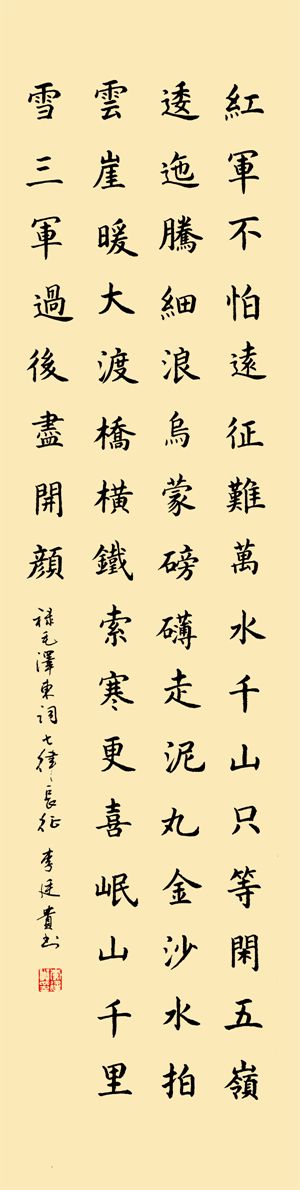 紅軍不怕遠征難萬水千山只等閑五嶺
逶迤騰細浪烏蒙磅礴走泥丸金沙水拍
雲崖暖大渡橋横鐵索寒更喜岷山千里
雪三軍過後盡開顔
禄毛澤東詞七律、長征 李廷貴书